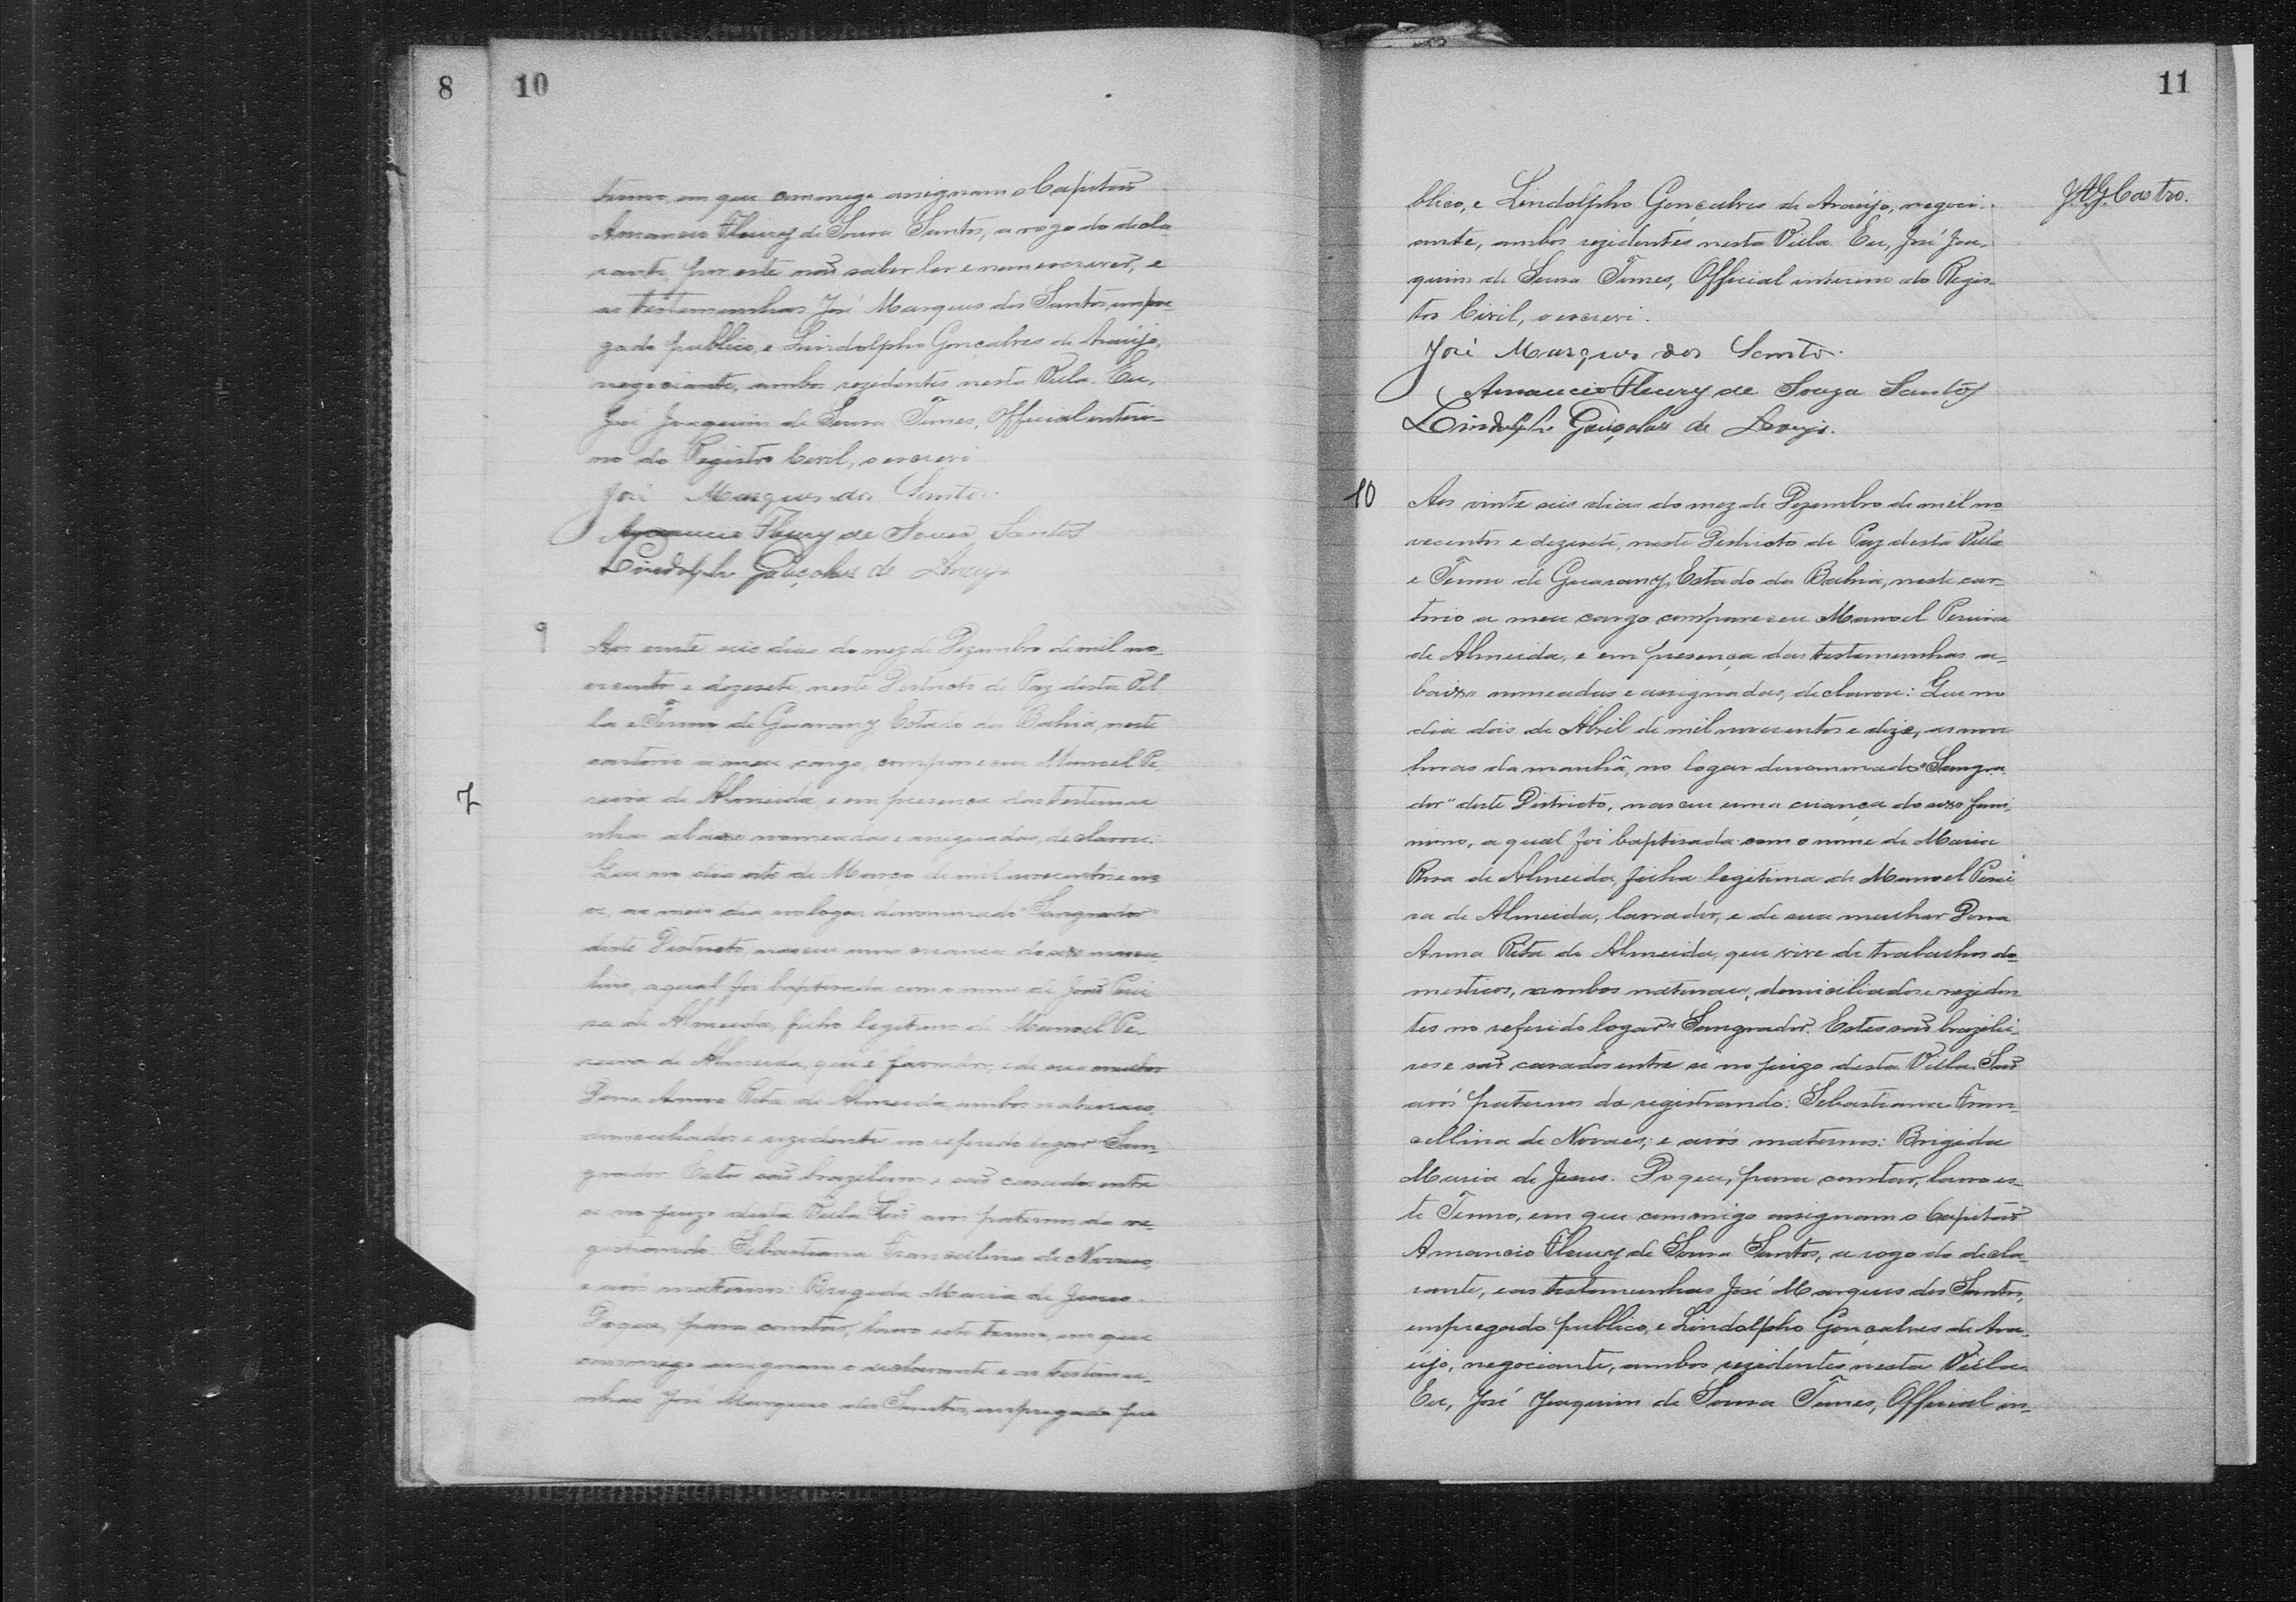 8
10
termo em que commigo assignam o Capitão
Amancio Fleury de Souza Santos, a rogo do decla
rante, por este não saber ler e nem escrever, e
as testemunhas José Marques dos Santos, empre
gado publico, e Lindolpho Gonçalves de Araújo,
negociante, ambos rezidentes nesta Villa. Eu,
José Joaquim de Souza Tunes, Official interi-
no do Registro Civil, o escrevi
José Marques dos Santos.
Amancio Fleury de Souza Santos
Lindolpho Gonçalves de Araujo
9
Aos vinte seis dias do mez de Dezembro de mil no-
vecentos e dezesete, neste Districto de Paz desta Vil
la e Termo de Guarany, Estado da Bahia, neste
cartorio a meu cargo, compareceu Manoel Pe
7
reira de Almeida, e em presença das testemu
nhas abaixo nomeadas e assignadas, declarou:
Que no dia de Março de mil novecentos e
ao meio dia no logar denominado "Sangrador"
deste Districto, nasceu uma criança do sexo mascu
lino, a qual foi baptisada com o nome de João Perei
ra de Almeida, filho legitimo de Manoel Pe-
reira de Almeida, que é lavrador, e de sua mulher
Dona Anna Rita de Almeida, ambos naturaes,
domiciliados e rezidentes no referido logar "San-
grador. Estes são brazileiros e são casados entre
si no juizo desta Villa. São avós paternos do re
gistrando: Sebastiana Francellina de Novaes,
e avós maternos: Brigida Maria de Jesus.
Do que, para constar, lavro este termo, em que
commigo assignam o declarante e as testemu-
nhas José Marques dos Santos, empregado pu
11
blico, e Lindolpho Gonçalves de Araújo, negoci-
J.A.G. Castro.
ante, ambos rezidentes nesta Villa. Eu, José Joa-
quim de Souza Tunes, Official interino do Regis-
tro Civil, o escrevi.
José Marques dos Santos.
Amancio Fleury de Souza Santos
Lindolpho Gonçalves de Araujo.
10
Aos vinte seis dias do mez de Dezembro de mil no
vecentos e dezesete, neste Districto de Paz desta Villa
e Termo de Guarany, Estado da Bahia, neste car-
torio a meu cargo compareceu Manoel Pereira
de Almeida, e em presença das testemunhas a-
baixo nomeadas e assignadas, declarou: Que no
dia dois de Abril de mil novecentos e doze, as nove
horas da manhã, no logar denominado "Sangra-
dor" deste Districto, nasceu uma criança do sexo femi-
nino, a qual foi baptisada com o nome de Maria
Rosa de Almeida, filha legitima de Manoel Perei
ra de Almeida, lavrador, e de sua mulher Dona
Anna Rita de Almeida, que vive de trabalhos do-
mesticos, ambos naturaes, domiciliados e reziden
tes no referido logar "Sangrador. Estes são brazilei-
ros e são casados entre si no juizo desta Villa. São
avós paternos da registranda: Sebastiana Fran-
cellina de Novaes; e avós maternos: Brigida
Maria de Jesus. Do que, para constar, lavro es-
te Termo, em que commigo assignam o Capitão
Amancio Fleury de Souza Santos, a rogo do decla-
rante, e as testemunhas José Marques dos Santos,
empregado publico, e Lindolpho Gonçalves de Ara-
újo, negociante, ambos rezidentes nesta Villa.
Eu, José Joaquim de Souza Tunes, Official in-